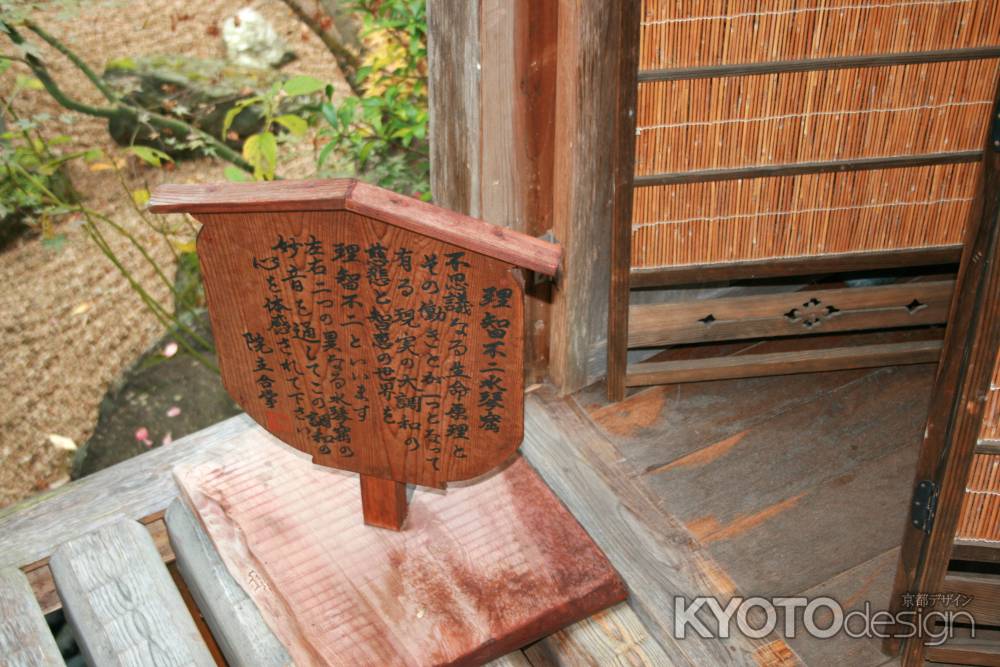 理智不二水琴窟
不思議なる生命原理と
その働きとが一つとなって
有る現実の大調和の
慈悲と智恵の世界を
理智不二といいます
左右二つの異なる水琴窟の
妙音を通してこの調和の
心を体感されて下さい
院主合掌
京都デザイン
KYOTOdesign